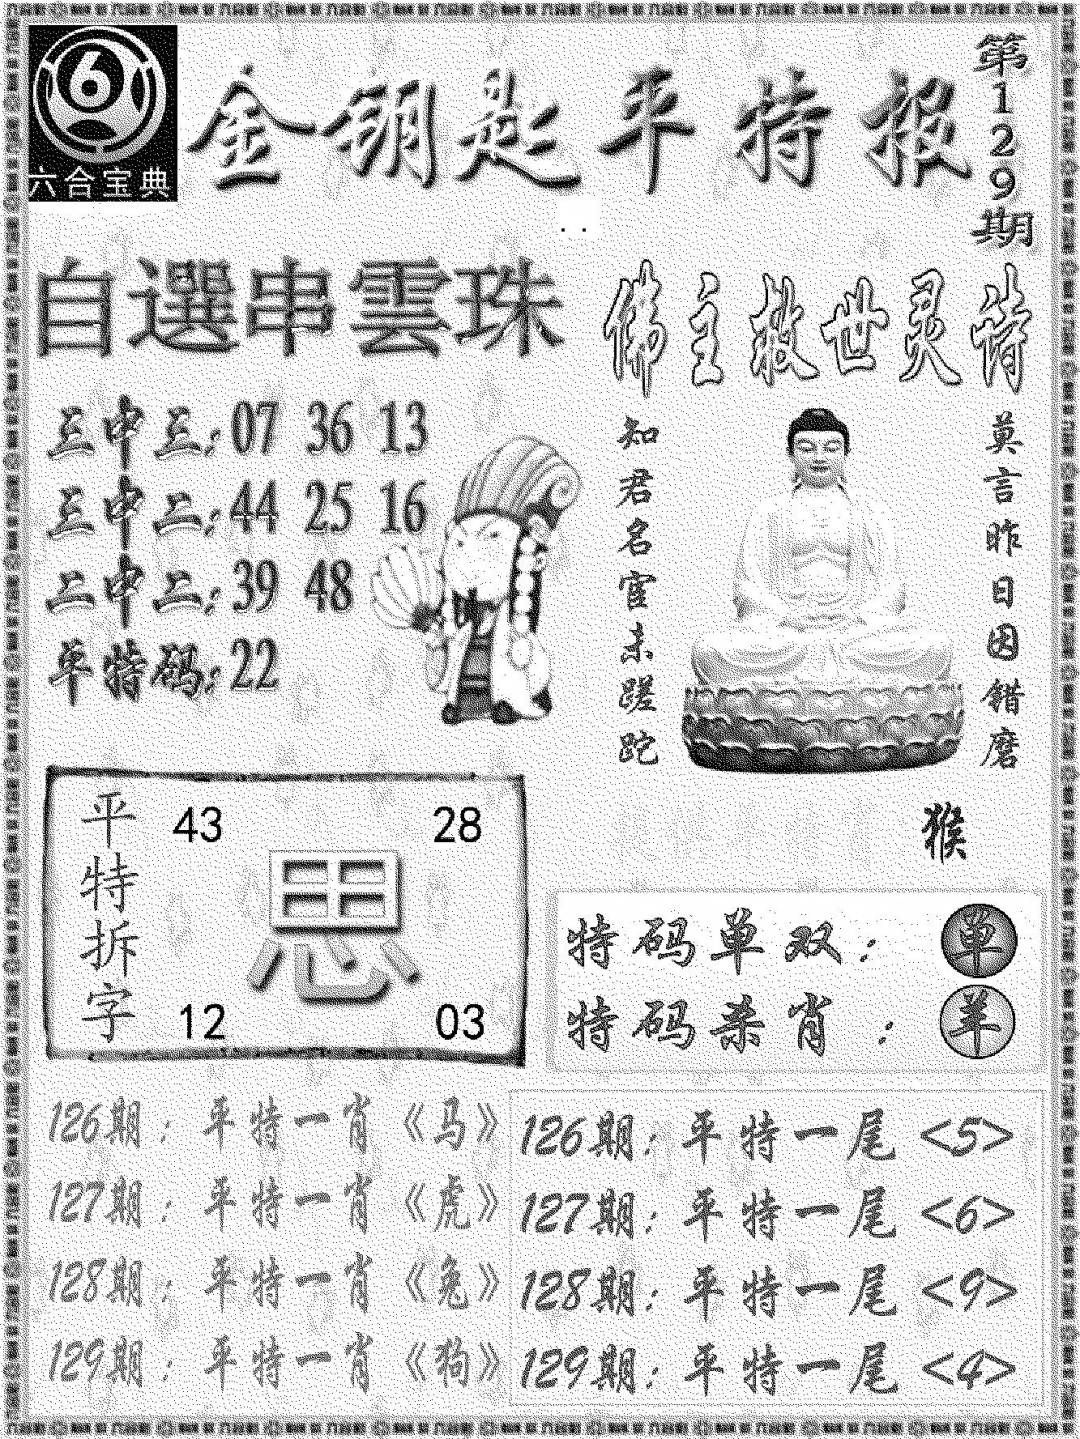 6
六合宝典
金钥匙平特报
第129期
自選串雲珠
三中三:07 36 13
三中二:44 25 16
二中二:39 48
单特码:22
佛主救世灵诗
莫言昨日因错磨
知君名宦未蹉跎
猴
平特拆字
43 28
思
12 03
特码单双:单
特码杀肖:羊
126期:平特一肖《马》
127期:平特一肖《虎》
128期:平特一肖《兔》
129期:平特一肖《狗》
126期:平特一尾<5>
127期:平特一尾<6>
128期:平特一尾<9>
129期:平特一尾<4>